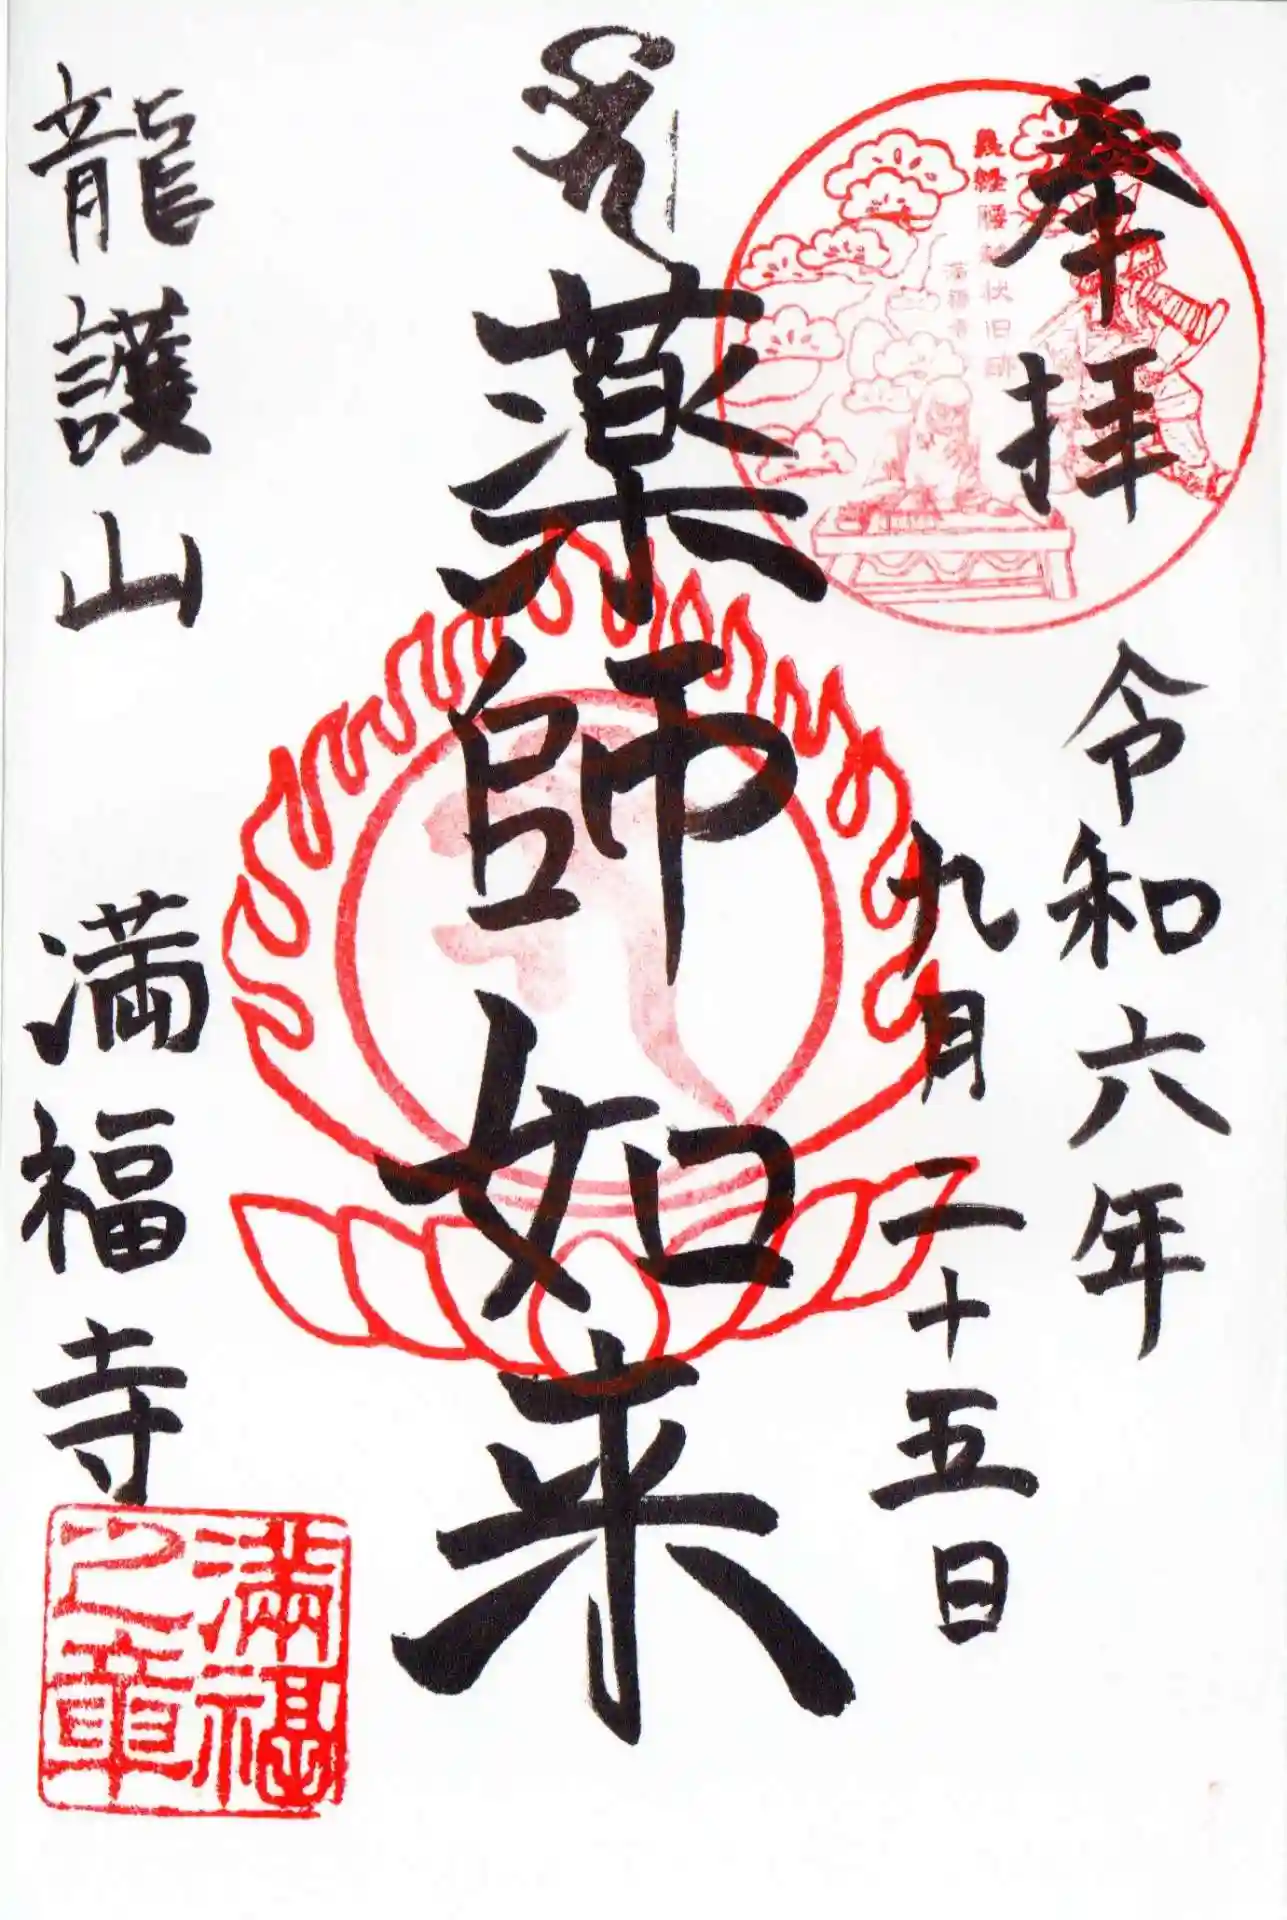 奉拝
義経腰越状旧跡
満福寺
令和六年
九月二十五日
薬師如来
龍護山 満福寺
満福
之章